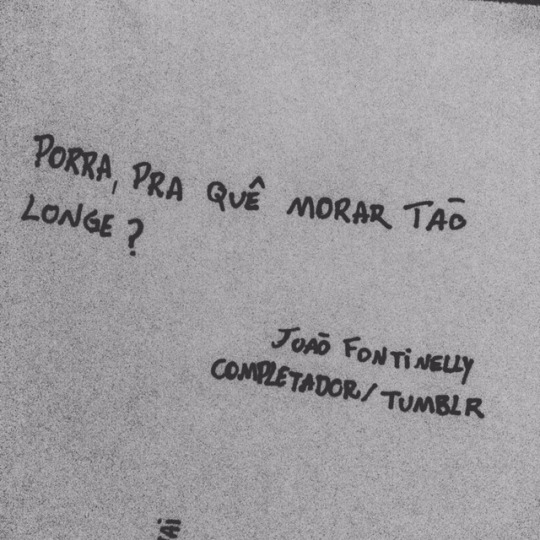 PORRA, PRA QUÊ MORAR TAÕ
LONGE?
JOAÕ FONTiNELLY
COMPLETADOR/TUMBLR